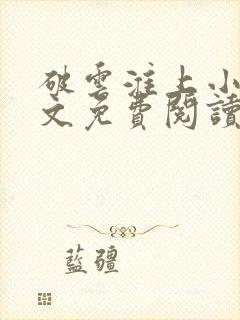 破雲淮上小
文免費閱讀
藍疆